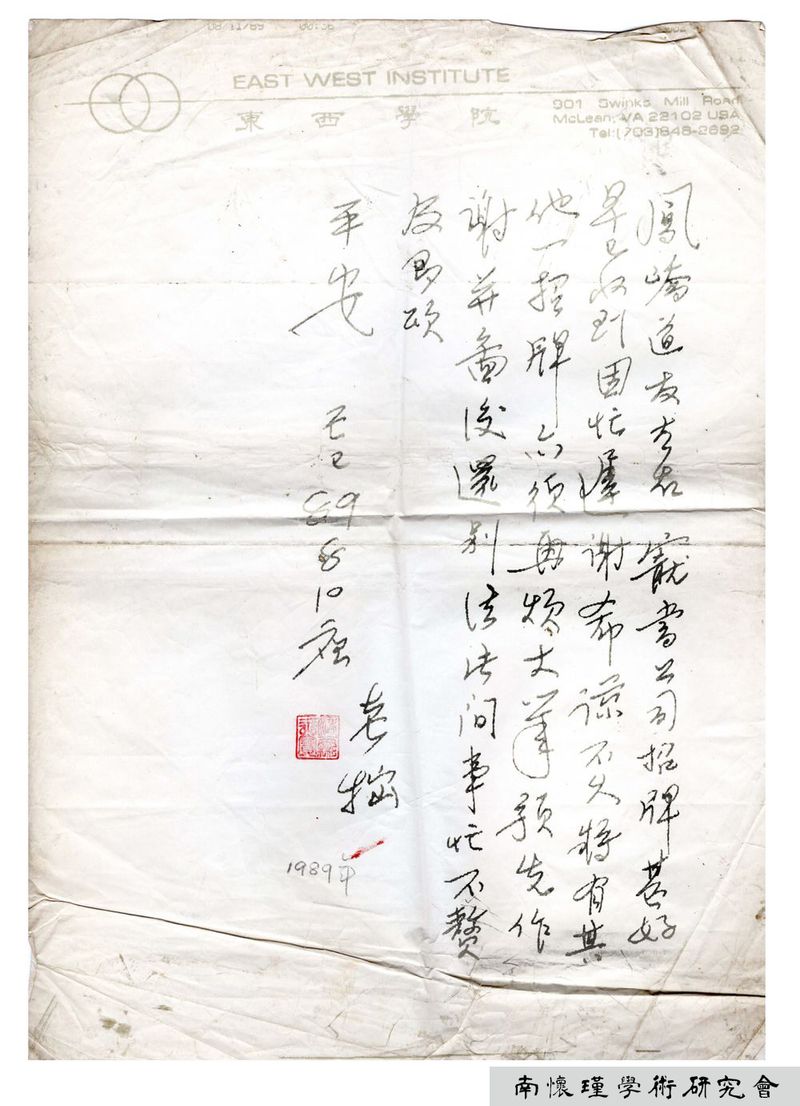 EAST WEST INSTITUTE
東西學院
901 Swinks Mill Road
McLean, VA 22102 USA
Tel: (703) 848-2692
鳳嶠道友大右 寵書公司招牌甚好
早已收到因忙遲謝希諒不久將有其
他一招牌亦須再煩大筆預先作
謝并面後還利法問事忙不贅
及即頌
平安
己巳 89 8 10
老拙
1989年
南懷瑾學術研究會